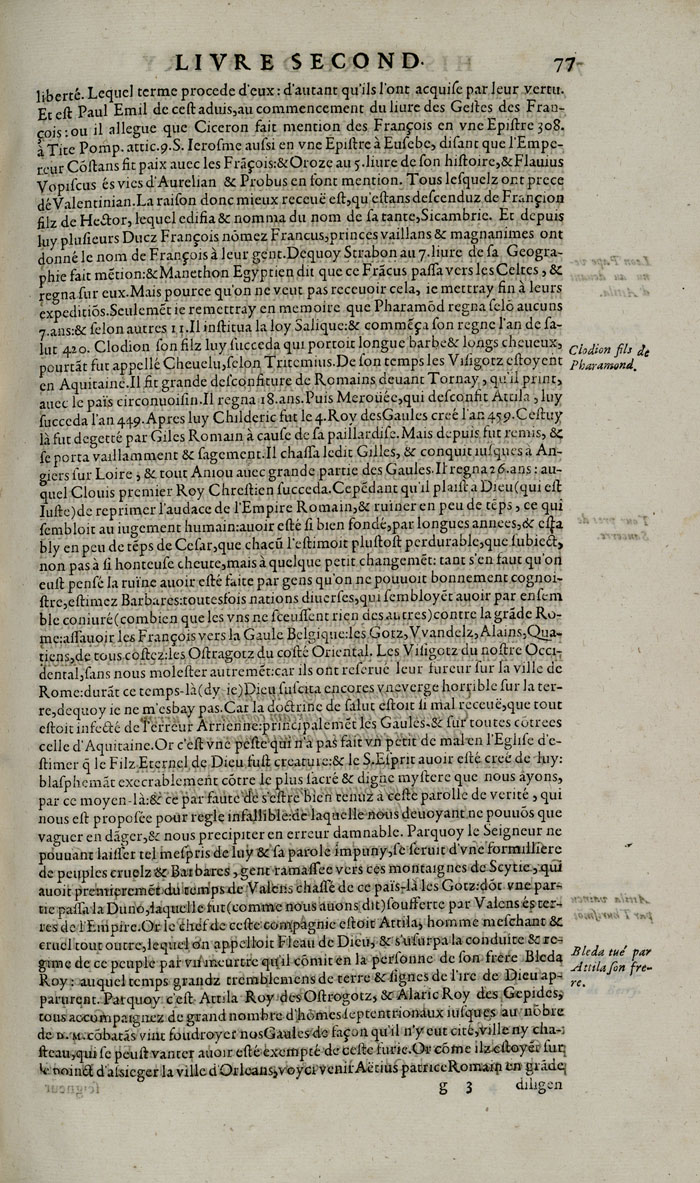 LIVRE SECOND. 77
liberté. Lequel terme procede d'eux : d'autant qu'ils l'ont acquiſe par leur vertu.
Et eſt Paul Emil de ceſt aduis, au commencement du liure des Geſtes des Fran-
çois : ou il allegue que Ciceron fait mention des François en vne Epiſtre 308.
à Tite Pomp. attic. 9. S. Ieroſme auſsi en vne Epiſtre à Euſebe, diſant que l'Empe-
reur Cõſtans fit paix auec les Frãçois: & Oroze au 5. liure de ſon hiſtoire, & Flauius
Vopiſcus és vies d'Aurelian & Probus en font mention. Tous leſquelz ont prece
dé Valentinian. La raiſon donc mieux receuë eſt, qu'eſtans deſcenduz de Françion
filz de Hector, lequel edifia & nomma du nom de ſa tante, Sicambrie. Et depuis
luy pluſieurs Ducz François nõmez Francus, princes vaillans & magnanimes ont
donné le nom de François à leur gent. Dequoy Strabon au 7. liure de ſa Geogra-
phie fait mẽtion: & Manethon Egyptien dit que ce Frãcus paſſa vers les Celtes, &
regna ſur eux. Mais pource qu'on ne veut pas receuoir cela, ie mettray fin à leurs
expeditiõs. Seulemẽt ie remettray en memoire que Pharamõd regna ſelõ aucuns
7. ans: & ſelon autres 11. Il inſtitua la loy Salique: & commẽça ſon regne l'an de ſa-
lut 420. Clodion ſon filz luy ſucceda qui portoit longue barbe & longs cheueux,
Clodion fils de
Pharamond.
pourtãt fut appellé Cheuelu, ſelon Tritemius. De ſon temps les Viſigotz eſtoyent
en Aquitaine. Il fit grande deſconfiture de Romains deuant Tornay, qu'il print,
auec le païs circonuoiſin. Il regna 18. ans. Puis Merouée, qui deſconfit Attila, luy
ſucceda l'an 449. Apres luy Childeric fut le 4. Roy des Gaules creé l'an 459. Ceſtuy
là fut degetté par Giles Romain à cauſe de ſa paillardiſe. Mais depuis fut remis, &
ſe porta vaillamment & ſagement. Il chaſſa ledit Gilles, & conquit iuſques à An-
giers ſur Loire, & tout Aniou auec grande partie des Gaules. Il regna 26. ans : au-
quel Clouis premier Roy Chreſtien ſucceda. Cepẽdant qu'il plaiſt a Dieu (qui eſt
Iuſte) de reprimer l'audace de l'Empire Romain, & ruiner en peu de tẽps, ce qui
ſembloit au iugement humain: auoir eſté ſi bien fondé, par longues annees, & eſta
bly en peu de tẽps de Ceſar, que chacũ l'eſtimoit pluſtoſt perdurable, que ſubiect,
non pas à ſi honteuſe cheute, mais à quelque petit changemẽt: tant s'en faut qu'on
euſt penſé la ruïne auoir eſté faite par gens qu'on ne pouuoit bonnement cognoi-
ſtre, eſtimez Barbares: toutesfois nations diuerſes, qui ſembloyẽt auoir par enſem
ble coniuré (combien que les vns ne ſceuſſent rien des autres) contre la grãde Ro-
me: aſſauoir les François vers la Gaule Belgique: les Gotz, Vvandelz, Alains, Qua-
tiens, de tous coſtez: les Oſtragotz du coſté Oriental. Les Viſigotz du noſtre Occi-
dental, ſans nous moleſter autremẽt: car ils ont reſerué leur fureur ſur la ville de
Rome: durãt ce temps-là (dy-ie) Dieu ſuſcita encores vne verge horrible ſur la ter-
re, dequoy ie ne m'esbay pas. Car la doctrine de ſalut eſtoit ſi mal receuë, que tout
eſtoit infecté de l'erreur Arrienne: principalemẽt les Gaules. & ſur toutes cõtrees
celle d'Aquitaine. Or c'eſt vne peſte qui n'a pas fait vn petit de mal en l'Egliſe d'e-
ſtimer q̃ le Filz Eternel de Dieu fuſt creature: & le S. Eſprit auoir eſté creé de luy:
blaſphemãt execrablement cõtre le plus ſacré & digne myſtere que nous ayons,
par ce moyen-là: & ce par faute de s'eſtre bien tenuz à ceſte parolle de verité, qui
nous eſt propoſée pour regle infallible: de laquelle nous deuoyant ne pouuõs que
vaguer en dãger, & nous precipiter en erreur damnable. Parquoy le Seigneur ne
pouuant laiſſer tel meſpris de luy & ſa parole impuny, ſe ſeruit d'vne formilliere
de peuples cruelz & Barbares, gent ramaſſee vers ces montaignes de Scytie, qui
auoit premieremẽt du temps de Valens chaſſé de ce païs-là les Gotz: dõt vne par-
tie paſſa la Duno, laquelle fut (comme nous auons dit) ſoufferte par Valens és ter-
res de l'Empire. Or le chef de ceſte compagnie eſtoit Attila, homme meſchant &
cruel tout outre, lequel on appelloit Fleau de Dieu, & s'vſurpa la conduite & re-
gime de ce peuple par vn meurtre qu'il cõmit en la perſonne de ſon frere Bleda
Bleda tué par
Attila ſon fre-
re.
Roy : auquel temps grandz tremblemens de terre & ſignes de l'ire de Dieu ap-
parurent. Parquoy c'eſt Attila Roy des Oſtrogotz, & Alaric Roy des Gepides,
tous accompaignez de grand nombre d'hõmes ſeptentrionaux iuſques au nõbre
de D. M. cõbatãs vint foudroyer nos Gaules de façon qu'il n'y eut cité, ville ny cha-
ſteau, qui ſe peuſt vanter auoir eſté exempté de ceſte furie. Or cõme ilz eſtoyẽt ſur
le poinct d'aſsieger la ville d'Orleans, voyci venir Aëtius patrice Romain en grãde
g 3 diligen